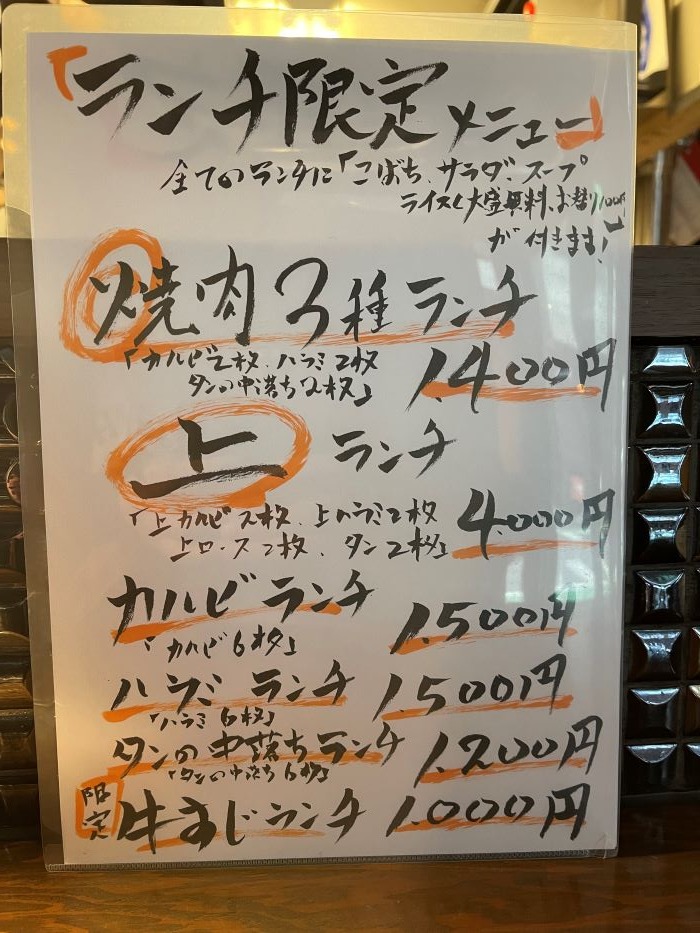 「ランチ限定メニュー」
全てのランチに「こばち、サラダ、スープ
ライス(大盛無料、お替り100円
が付きます!
焼肉3種ランチ
「カルビ2枚、ハラミ2枚
タンの中落ち2枚」
1.400円
上ランチ
「上カルビ2枚、上ハラミ2枚
上ロース2枚、タン2枚」
4.000円
カルビランチ
「カルビ6枚」
1.500円
ハラミランチ
「ハラミ6枚」
1.500円
タンの中落ちランチ
「タンの中落ち6枚」
1.200円
限定 牛すじランチ
1.000円